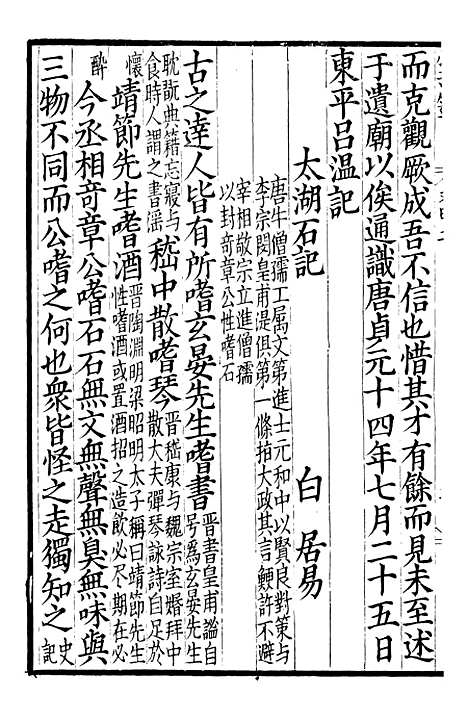 而克觀厥成吾不信也惜其才有餘而見未至述
于遺廟以俟通識唐貞元十四年七月二十五日
東平呂温記
太湖石記
白居易
唐牛僧孺工屬文第進士元和中以賢良對策與
李宗閔皇甫湜俱第一條拍大政其言鯁訐不避
宰相敬宗立進僧孺
以封竒章公性嗜石
古之達人皆有所嗜玄晏先生嗜書
晉書皇甫謐自
號爲玄晏先生
耽翫典籍忘寢與
食時人謂之書淫
嵇中散嗜琴
晉嵇康与魏宗室婚拜中
散大夫彈琴詠詩自足於
懷
靖節先生嗜酒
晉陶淵明梁昭明太子稱曰靖節先生
性嗜酒或置酒招之造飲必尽期在必
醉
今丞相竒章公嗜石石無文無聲無臭無味與
三物不同而公嗜之何也衆皆怪之走獨知之
史
記